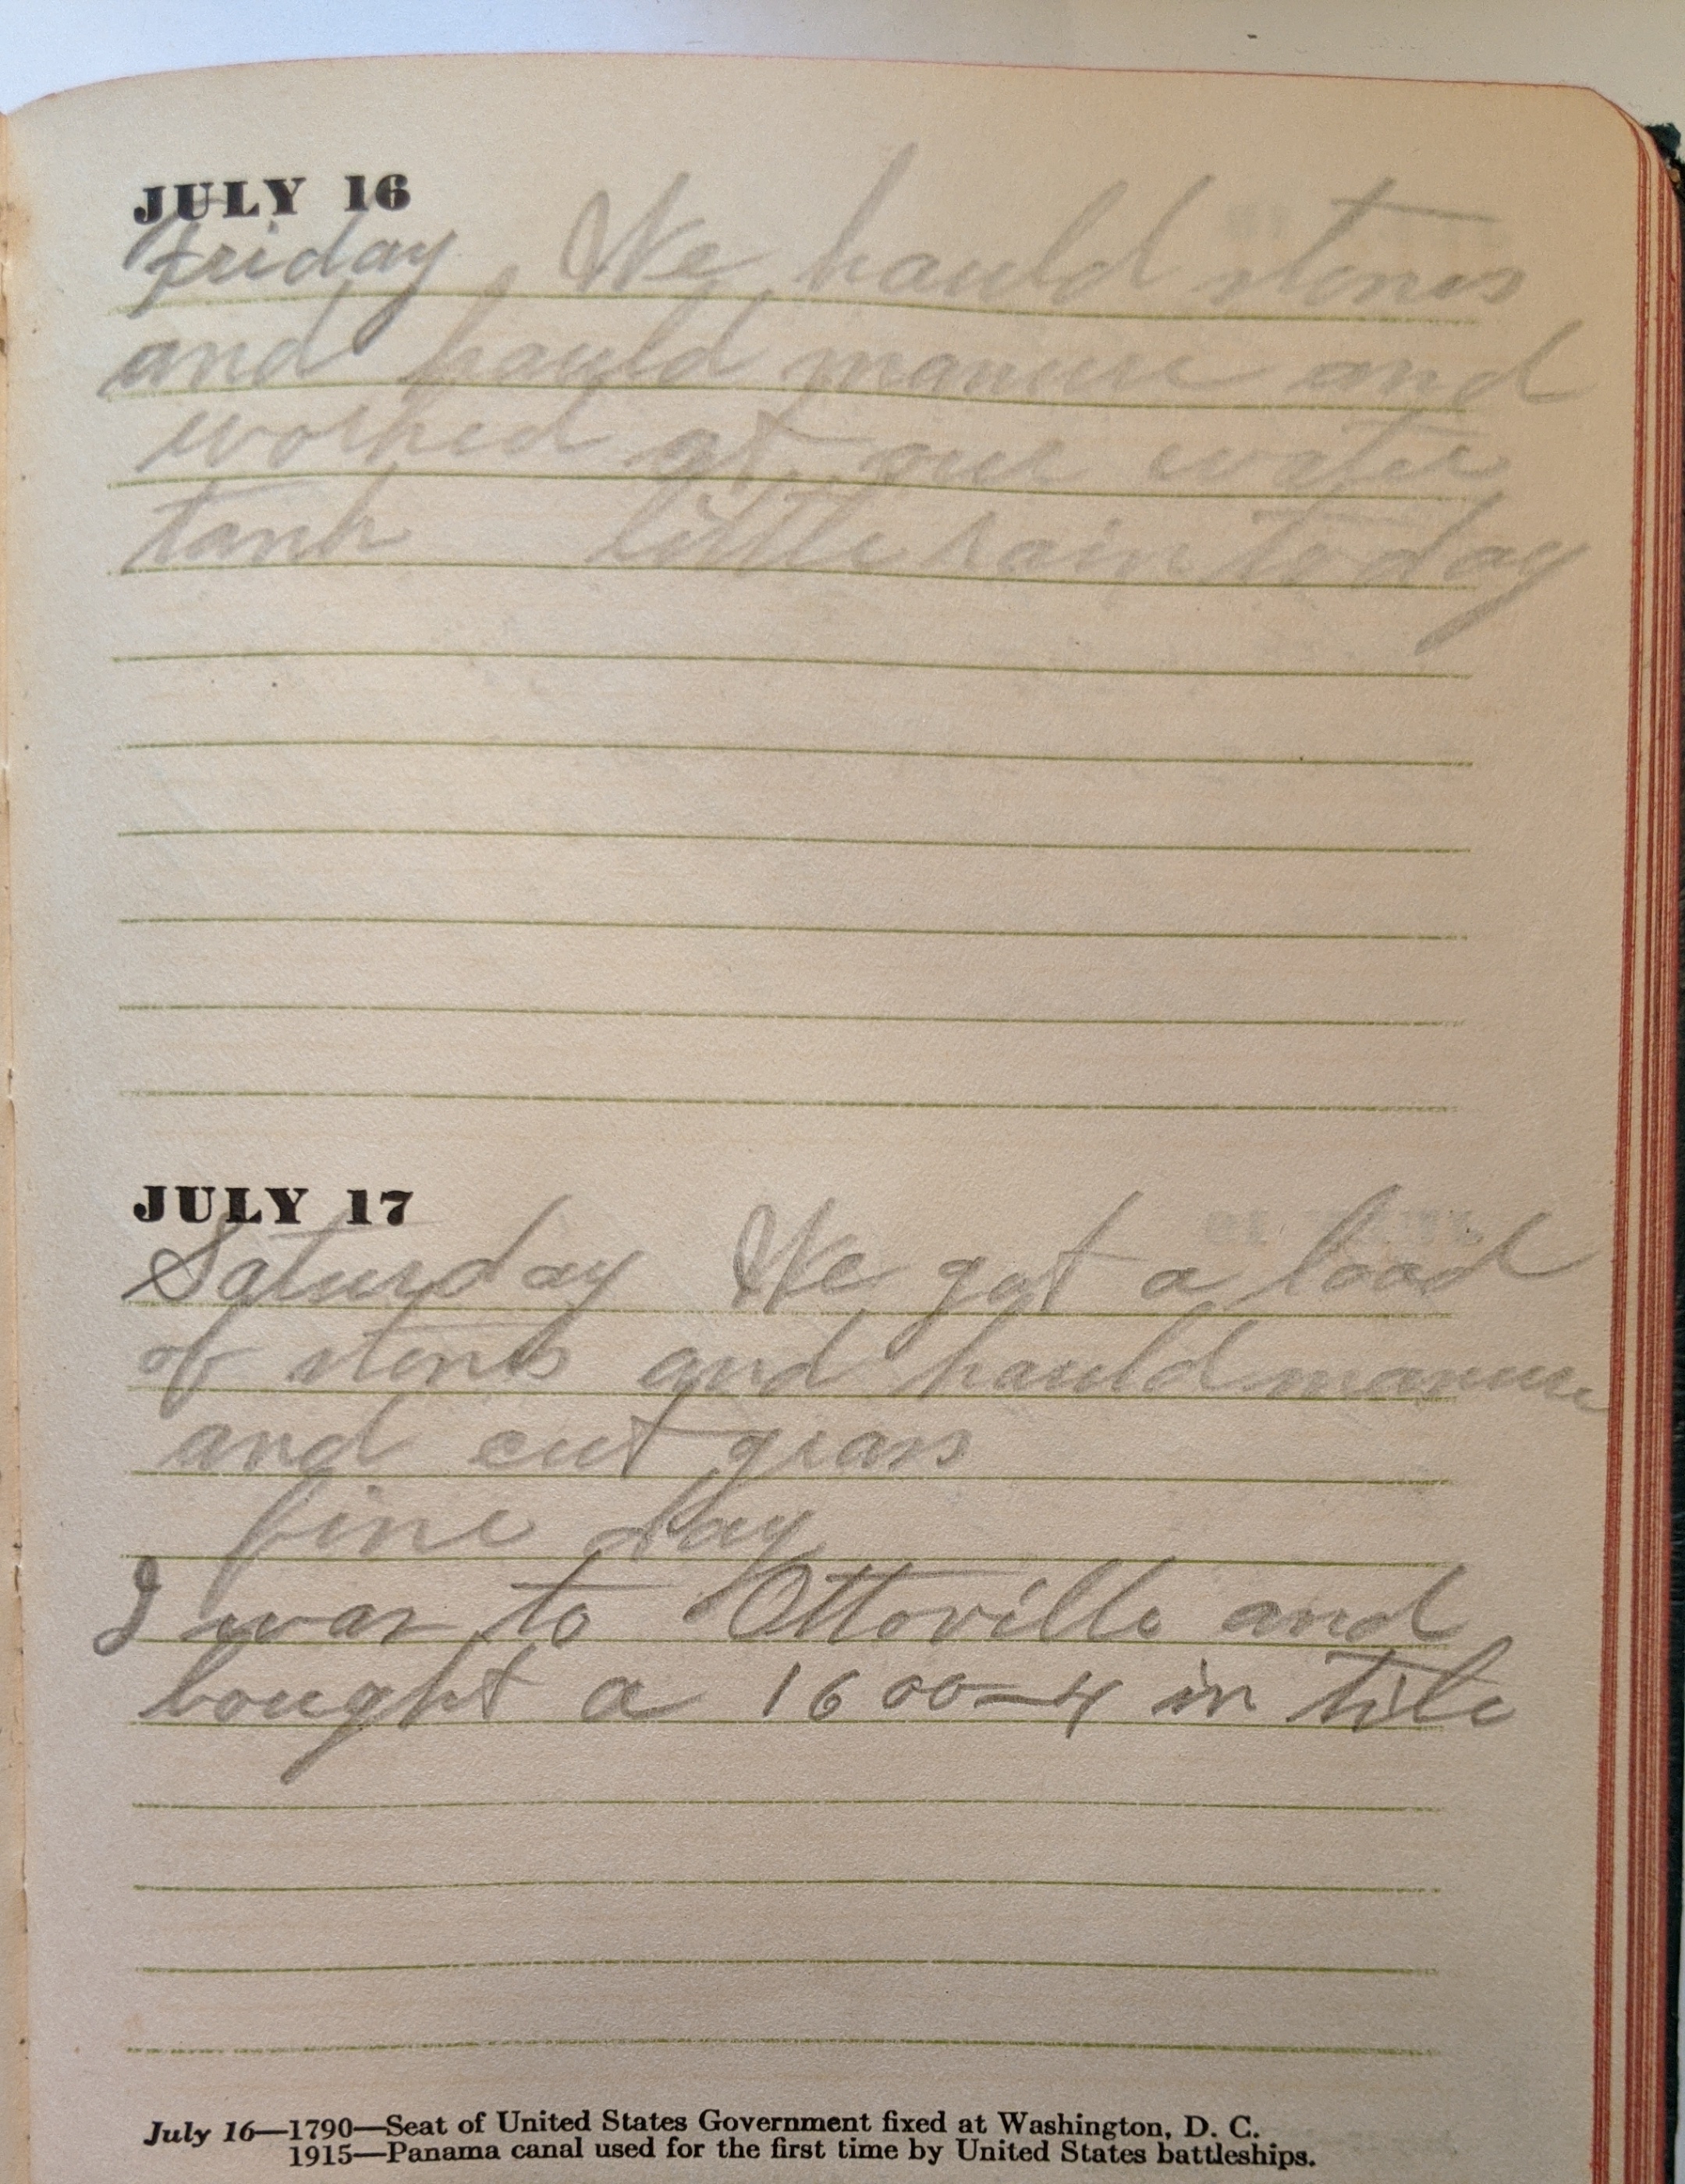 JULY 16
Friday We hauld stones
and hauld manure and
worked at our water
tank little rain to day
JULY 17
Saturday We got a load
of stones and hauld manure
and cut grass
fine day
I was to Ottoville and
bought a 1600—4 in tile
July 16—1790—Seat of United States Government fixed at Washington, D. C.
1915—Panama canal used for the first time by United States battleships.